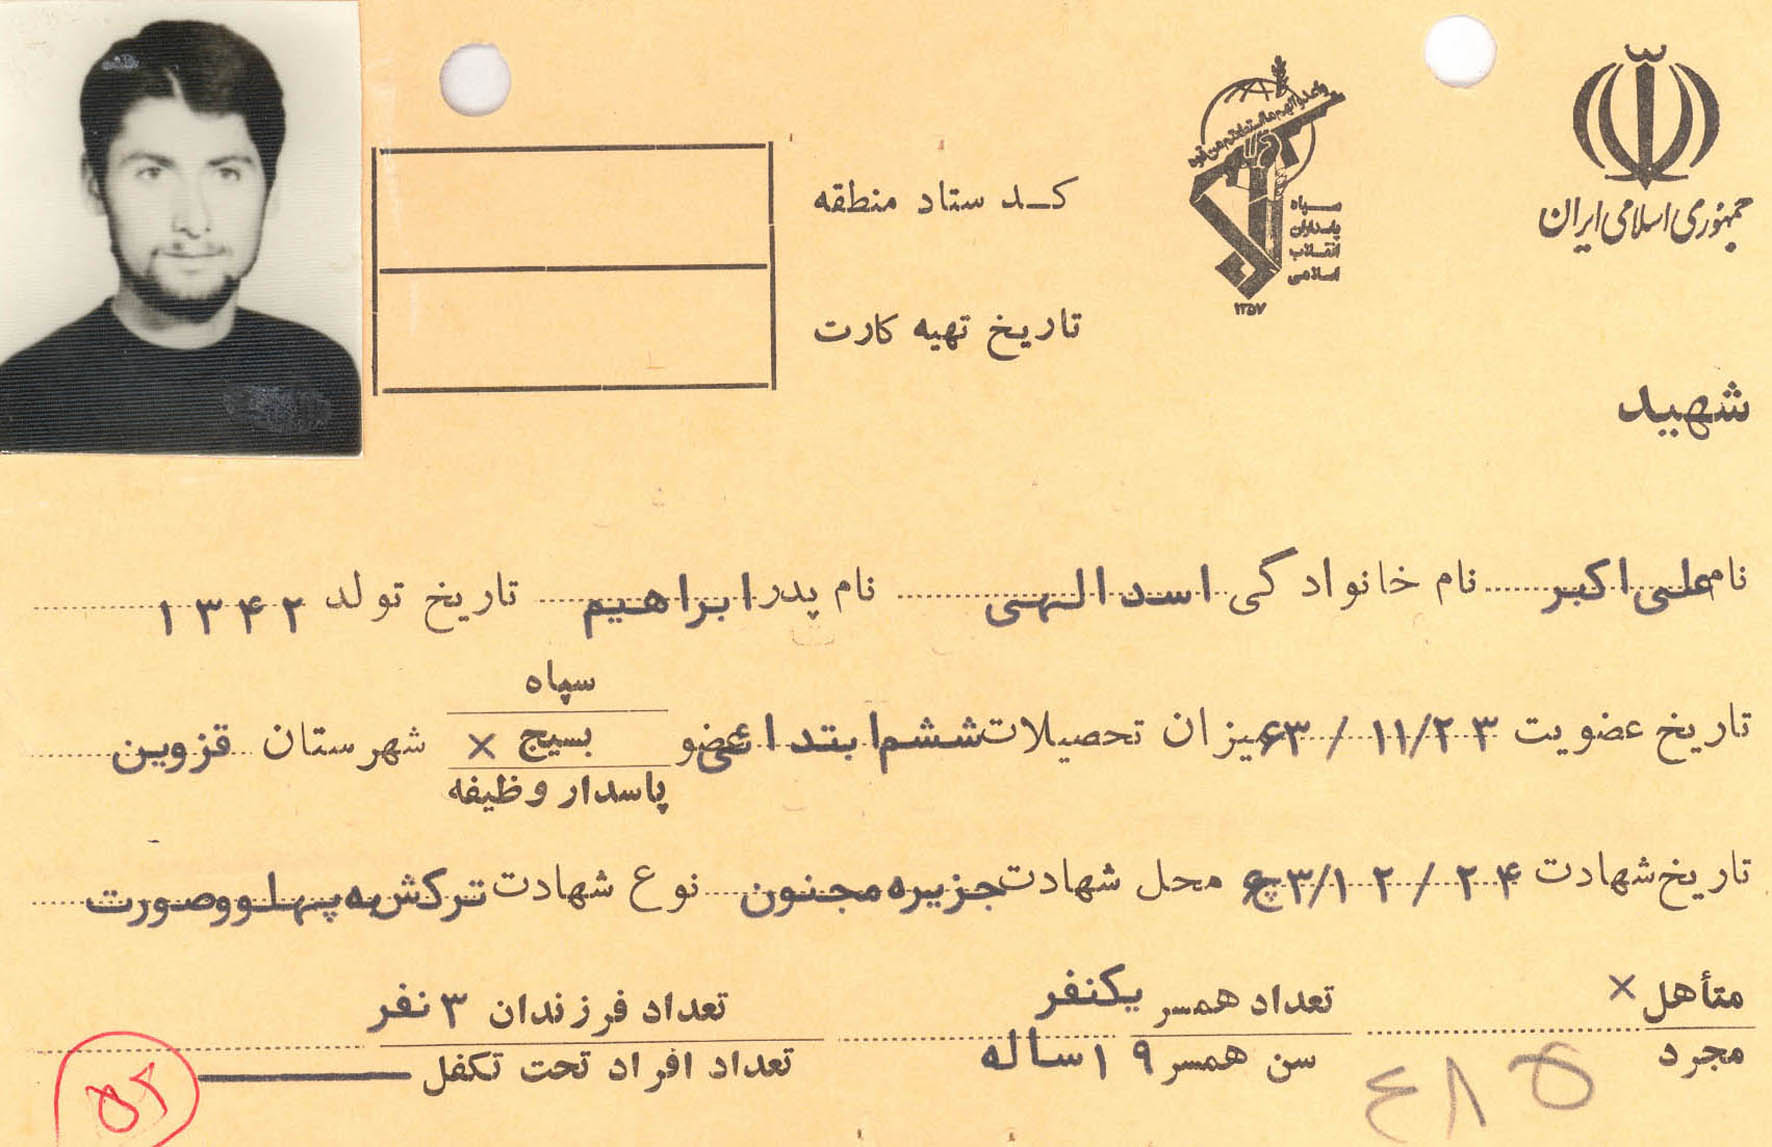 جمهوری اسلامی ایران
واعدوا لهم ما استطعتم من قوة
سپاه
پاسداران
انقلاب
اسلامی
۱۳۵۷
کد ستاد منطقه
تاریخ تهیه کارت
شهید
نام علی اکبر نام خانوادگی اسدالهی نام پدر ابراهیم تاریخ تولد ۱۳۴۲
تاریخ عضویت ۶۳/۱۱/۲۳ میزان تحصیلات ششم ابتدائی عضو سپاه بسیج × پاسدار وظیفه شهرستان قزوین
تاریخ شهادت ۶۳/۱۲/۲۴ محل شهادت جزیره مجنون نوع شهادت ترکش به پهلو وصورت
متأهل × تعداد همسر یکنفر تعداد فرزندان ۳ نفر
مجرد سن همسر ۱۹ ساله تعداد افراد تحت تکفل
۵۲